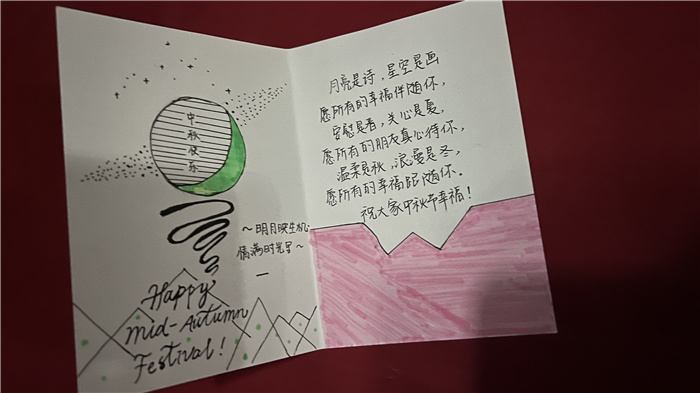 中
秋
快
乐
~明月映生机
情满时光里~
Happy
mid-Autumn
Festival!
月亮是诗，星空是画
愿所有的幸福伴随你，
安慰是春，关心是夏，
愿所有的朋友真心待你，
温柔是秋，浪漫是冬，
愿所有的幸福跟随你。
祝大家中秋节幸福！